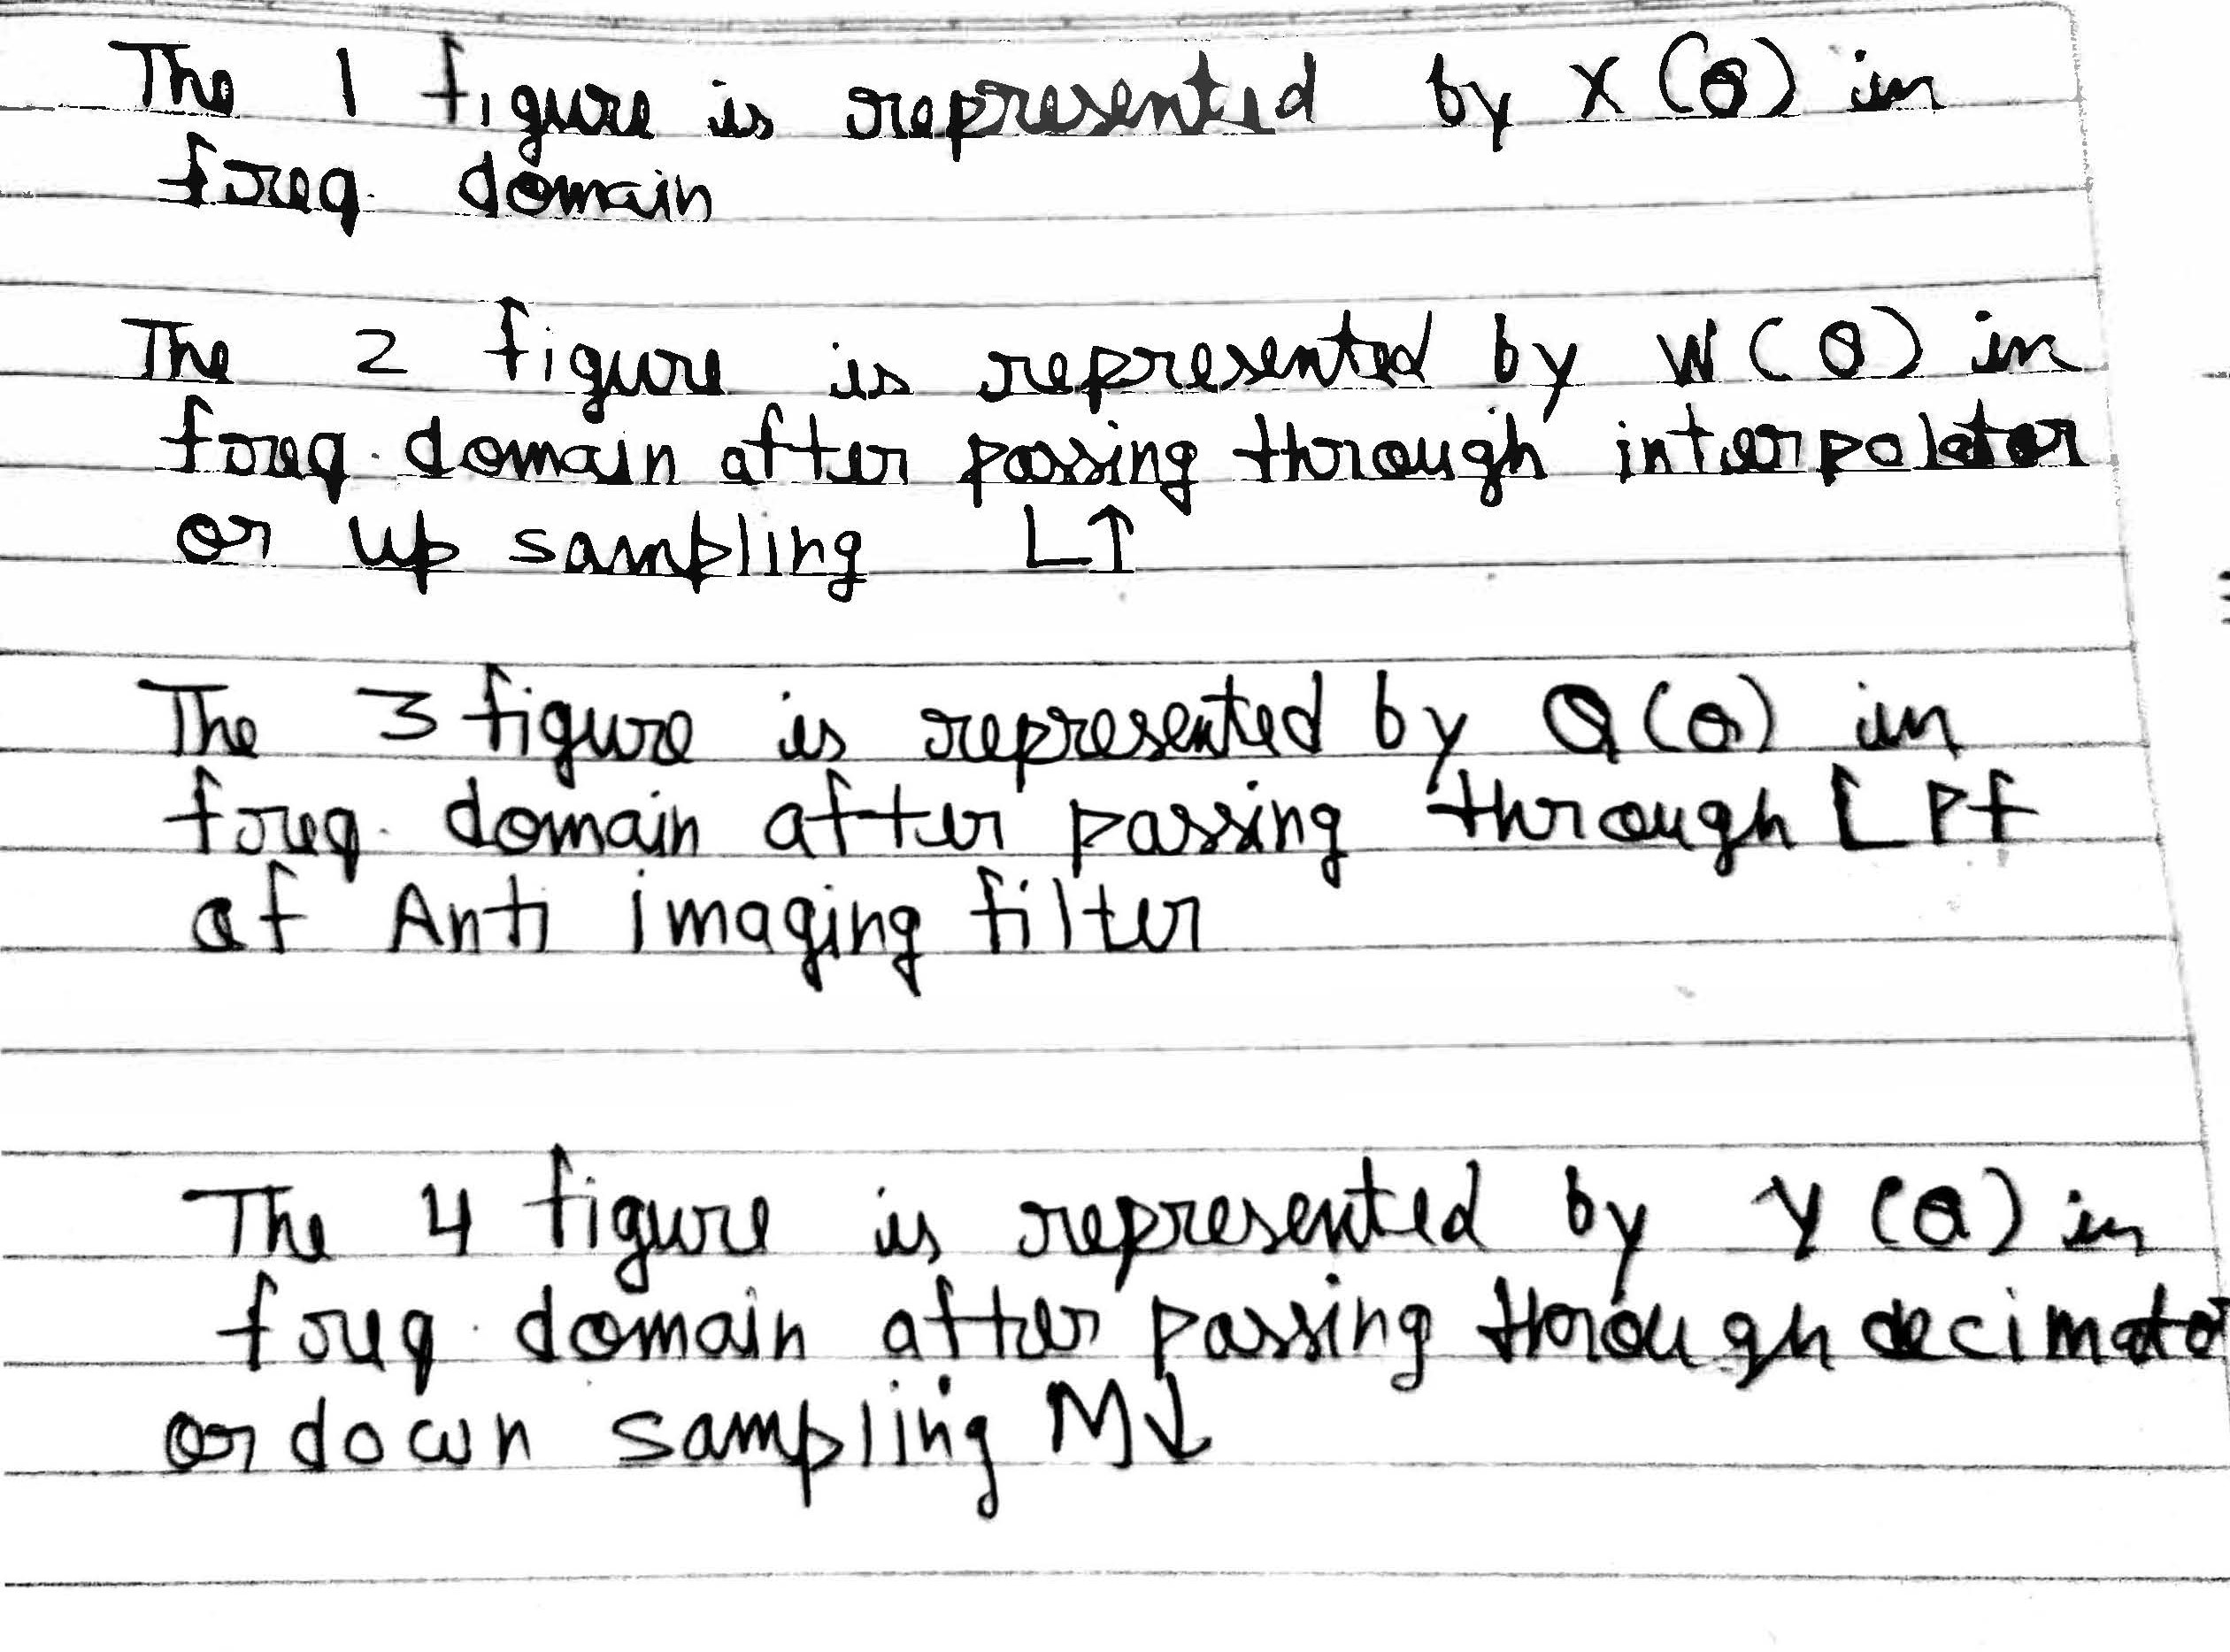 The 1 figure is represented by X(θ) in
freq. domain
The 2 figure is represented by W(θ) in
freq. domain after passing through interpolator
or up sampling L↑
The 3 figure is represented by Q(θ) in
freq. domain after passing through LPf
of Anti imaging filter
The 4 figure is represented by Y(θ) in
freq. domain after passing through decimator
or down sampling M↓